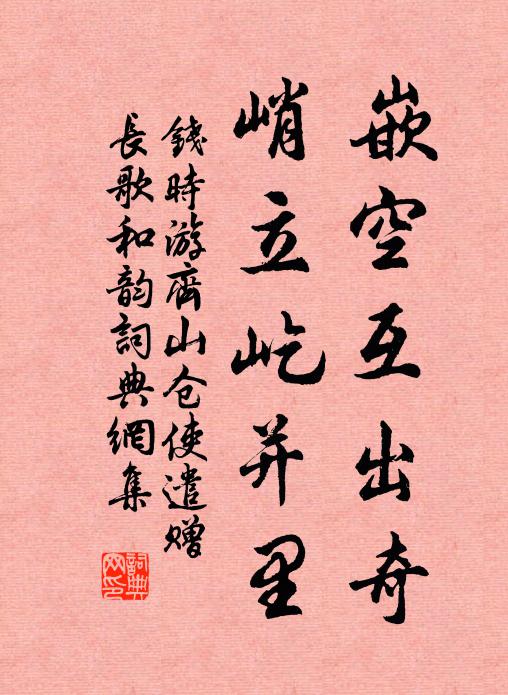 嵌空互出奇
峭立屹并里
錢時游齊山仓使遣赠
長歌和韵詞典網集
詞典网印